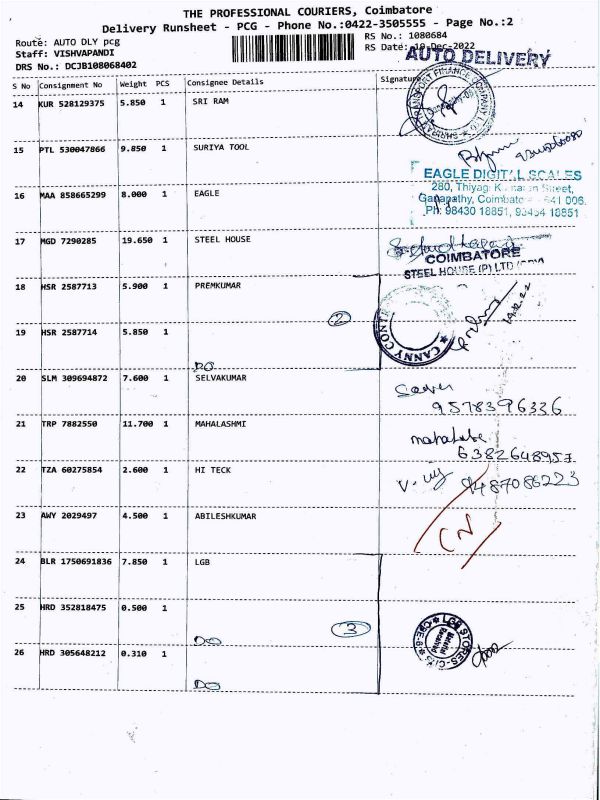 THE PROFESSIONAL COURIERS, Coimbatore
Delivery Runsheet - PCG - Phone No.:0422-3505555 - Page No.:2
Route: AUTO DLY pcg
Staff: VISHVAPANDI
DRS No.: DCJB108068402
RS No.: 1080684
RS Date: 19-Dec-2022
AUTO DELIVERY
S No Consignment No Weight PCS Consignee Details Signature
14 KUR 528129375 5.850 1 SRI RAM
15 PTL 530047866 9.850 1 SURIYA TOOL
EAGLE DIGITAL SCALES
280, Thiyagi Kumaran Street,
Ganapathy, Coimbatore - 641 006.
Ph: 98430 18851, 93454 18851
16 MAA 858665299 8.000 1 EAGLE
17 MGD 7290285 19.650 1 STEEL HOUSE
COIMBATORE
STEEL HOUSE (P) LTD
18 HSR 2587713 5.900 1 PREMKUMAR
2
19.12.22
19 HSR 2587714 5.850 1
DO
CANNY CONT
20 SLM 309694872 7.600 1 SELVAKUMAR
9578396336
21 TRP 7882550 11.700 1 MAHALASHMI
6382648957
22 TZA 60275854 2.600 1 HI TECK
9487086223
23 AWY 2029497 4.500 1 ABILESHKUMAR
CN
24 BLR 1750691836 7.850 1 LGB
25 HRD 352818475 0.500 1
3
DO
LGB STORES-CBE-6
26 HRD 305648212 0.310 1
DO